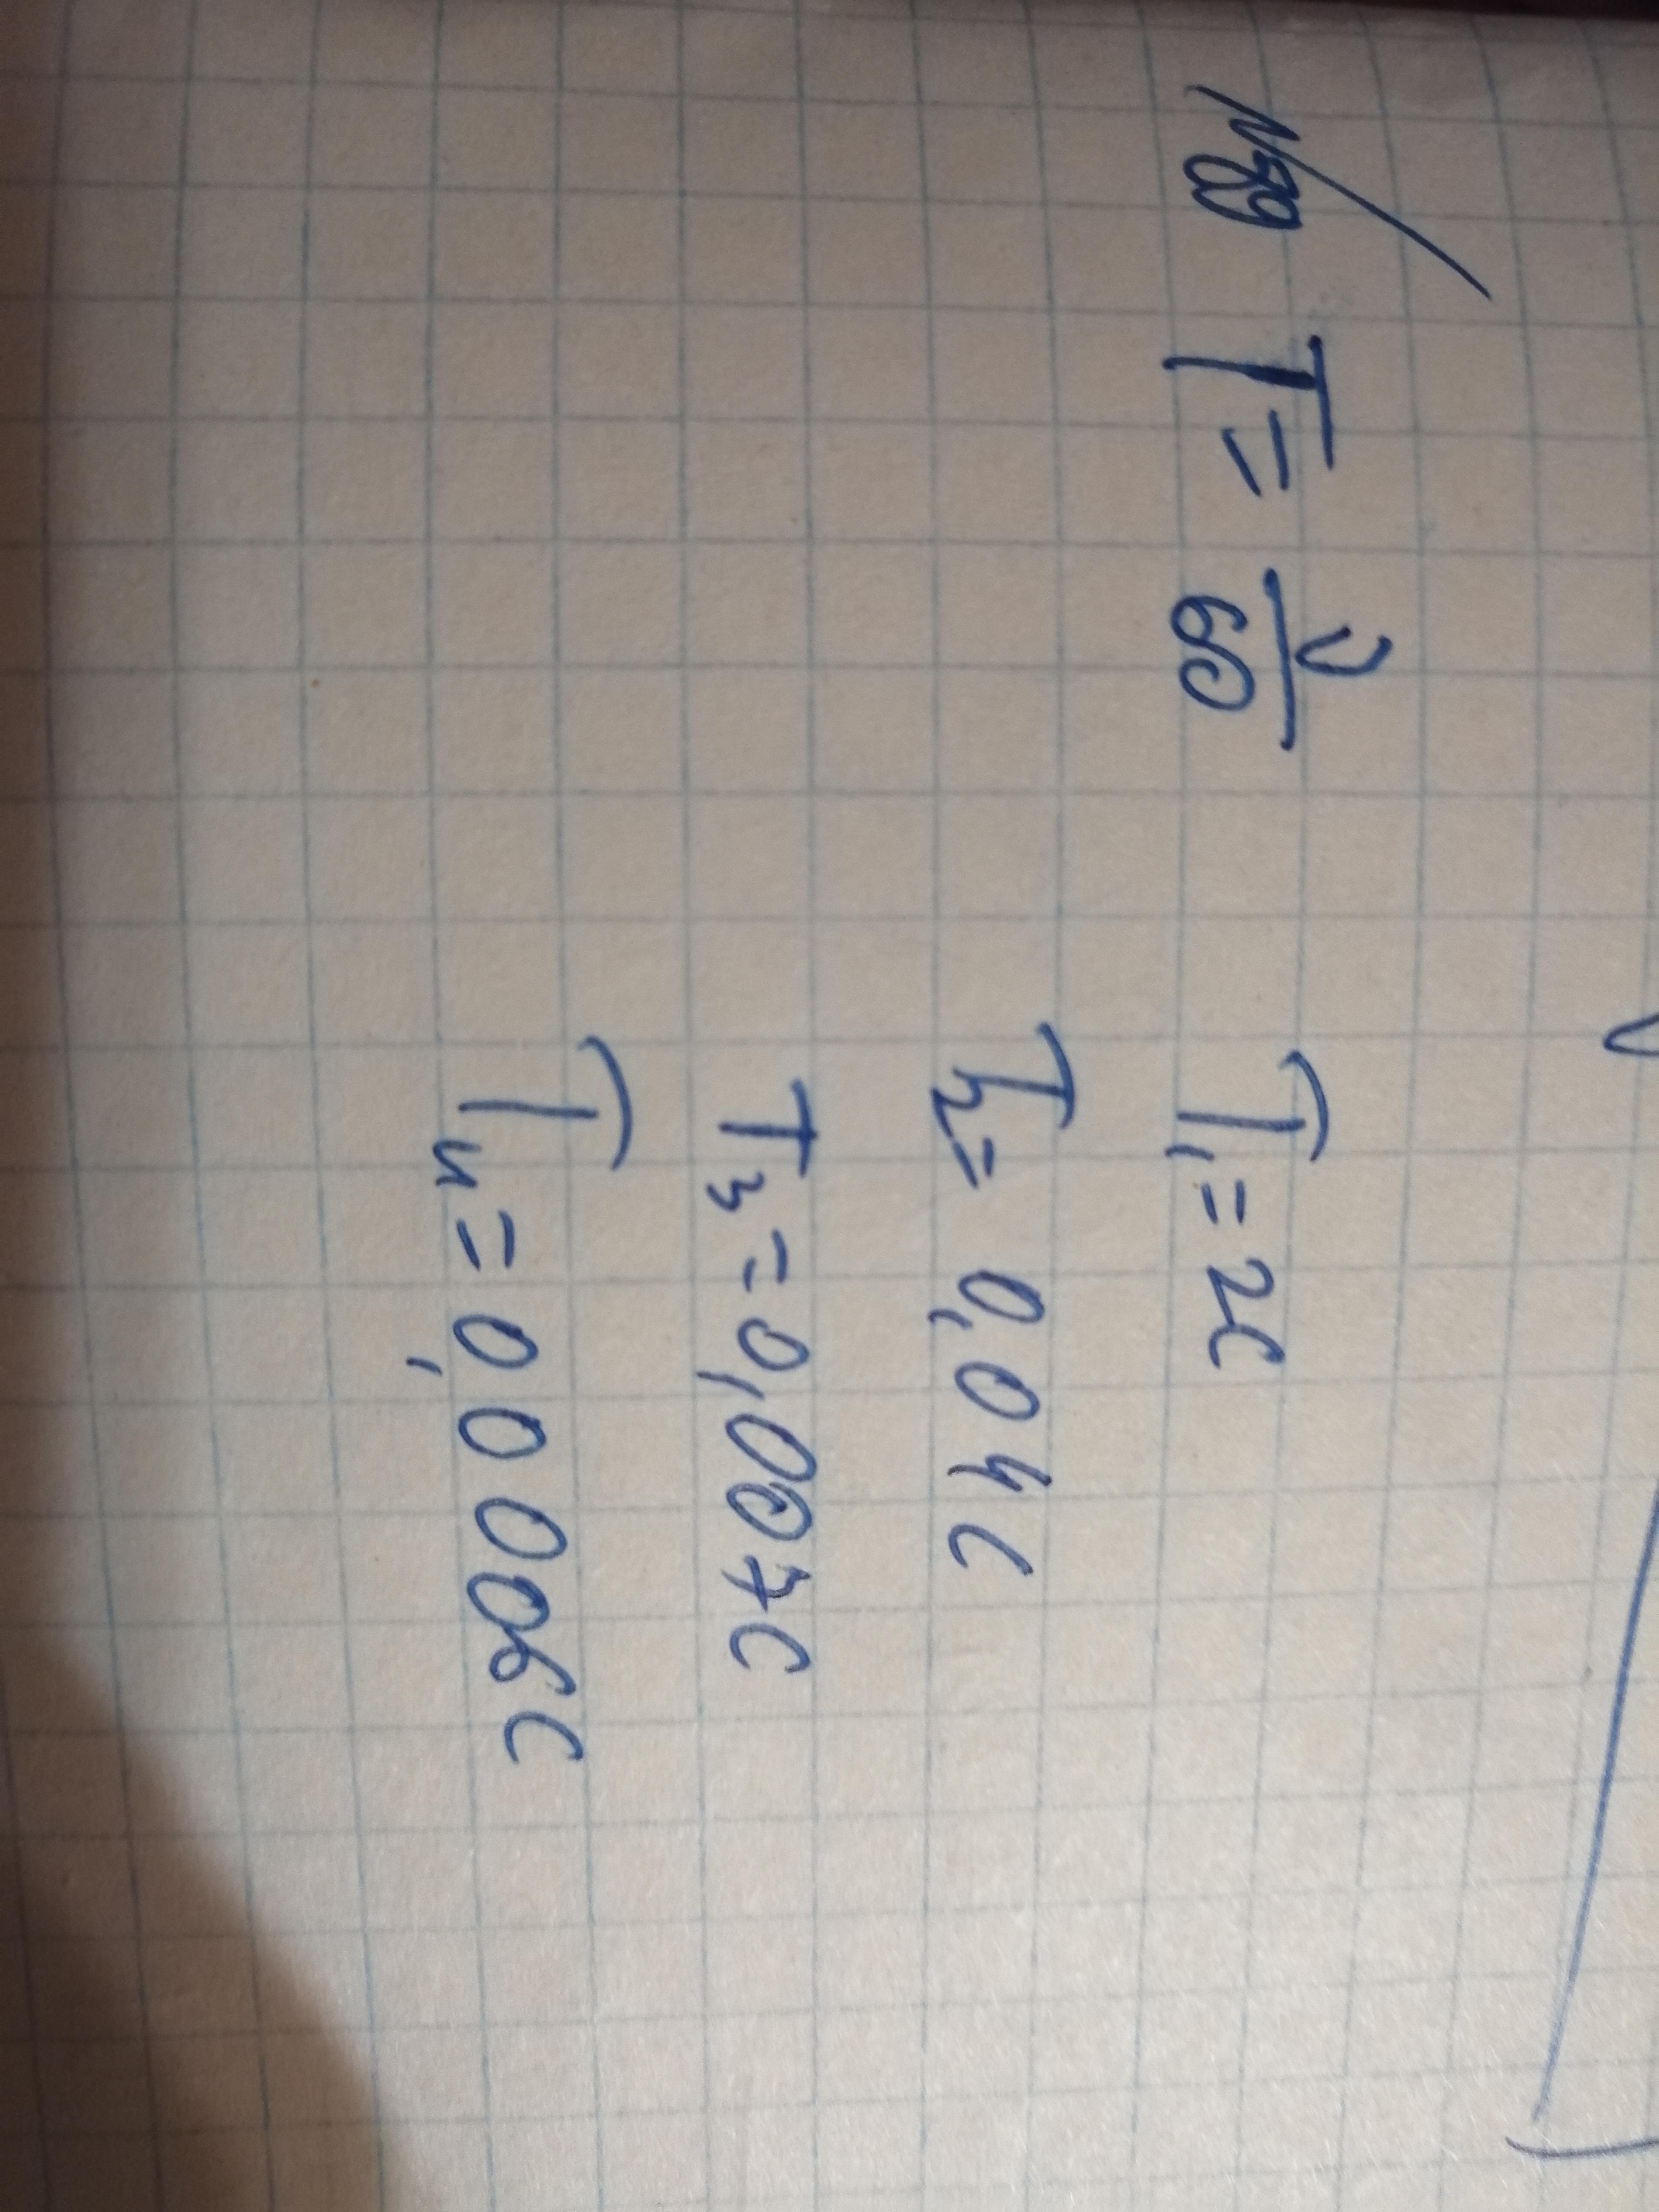 №89 T = υ/60 T₁=2c
T₂= 0,04c
T₃=0,007c
T₄=0,0006c